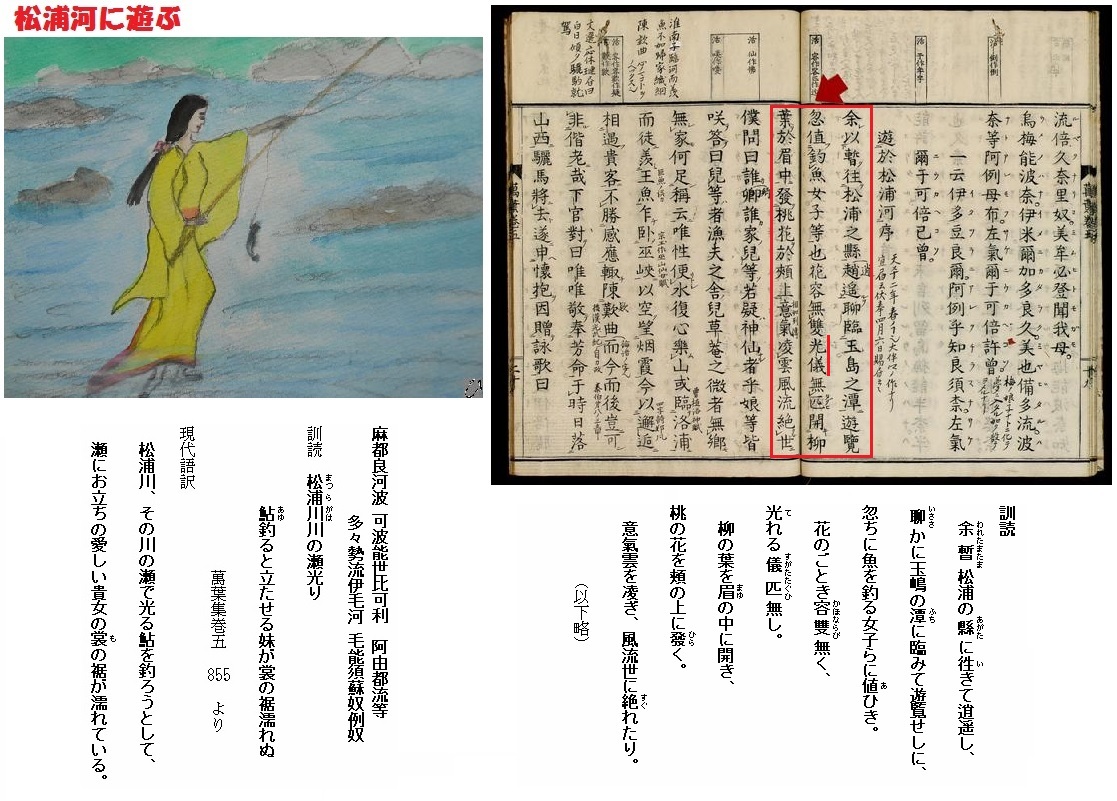 松浦河に遊ぶ
流倍久奈里奴。美牟必登聞我母。
烏梅能波奈。伊米爾加多良久。美也備多流波
奈等阿例母布。左氣爾于可倍許曾。
一云伊多豆良爾。阿例乎知良須奈。左氣
爾于可倍己曾。
遊於松浦河序
余以暫往松浦之縣逍遥聊臨玉島之潭遊覽
忽値釣魚女子等也花容無雙光儀無匹開柳
葉於眉中發桃花於頰上意氣凌雲風流絶世
僕問曰誰鄉誰家兒等若疑神仙者乎娘等皆
咲答曰兒等者漁夫之舍兒草菴之微者無鄉
無家何足稱云唯性便水復心樂山或臨洛浦
而徒羨王魚乍臥巫峽以空望烟霞今以邂逅
相遇貴客不勝感應輙陳歎曲而今而後豈可
非偕老哉下官對曰唯唯敬奉芳命于時日落
山西驪馬將去遂申懷抱因贈詠歌曰
訓読
余暫松浦の縣に徃きて逍遥し、
聊かに玉嶋の潭に臨みて遊覧せしに、
忽ちに魚を釣る女子らに値ひき。
花のごとき容雙無く、
光れる儀匹無し。
柳の葉を眉の中に開き、
桃の花を頬の上に發く。
意氣雲を凌ぎ、風流世に絶れたり。
（以下略）
麻都良河波 可波能世比可利 阿由都流等
多々勢流伊毛河 毛能須蘇奴例奴
訓読 松浦川川の瀬光り
鮎釣ると立たせる妹が裳の裾濡れぬ
萬葉集巻五 855 より
現代語訳
松浦川、その川の瀬で光る鮎を釣ろうとして、
瀬にお立ちの愛しい貴女の裳の裾が濡れている。